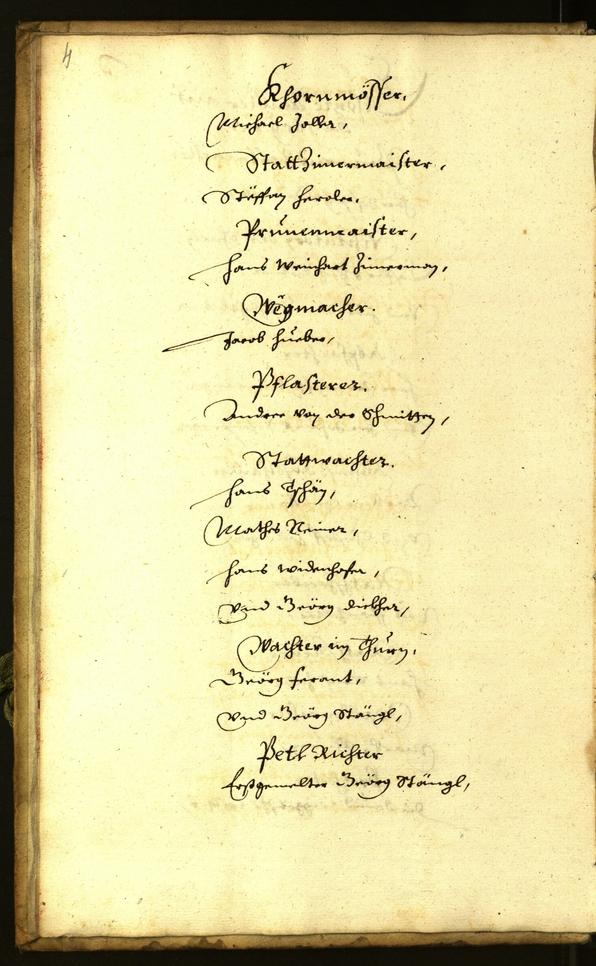 4
Khornmösser.
Michael Zoller,
StattZimermaister,
Stëffan heroler.
Prunenmaister,
hans Weinhart Zimerman,
Wëgmacher.
Jacob hueber,
Pflasterer.
Andree von der Schmitten,
Stattwachter.
hans Tschän,
Mathes Reiner,
hans widenhofer,
vnd Geörg dickher,
Wachter im Thurn.
Geörg ferant,
vnd Geörg Stängl,
Petl Richter
Erstgemelter Geörg Stängl,